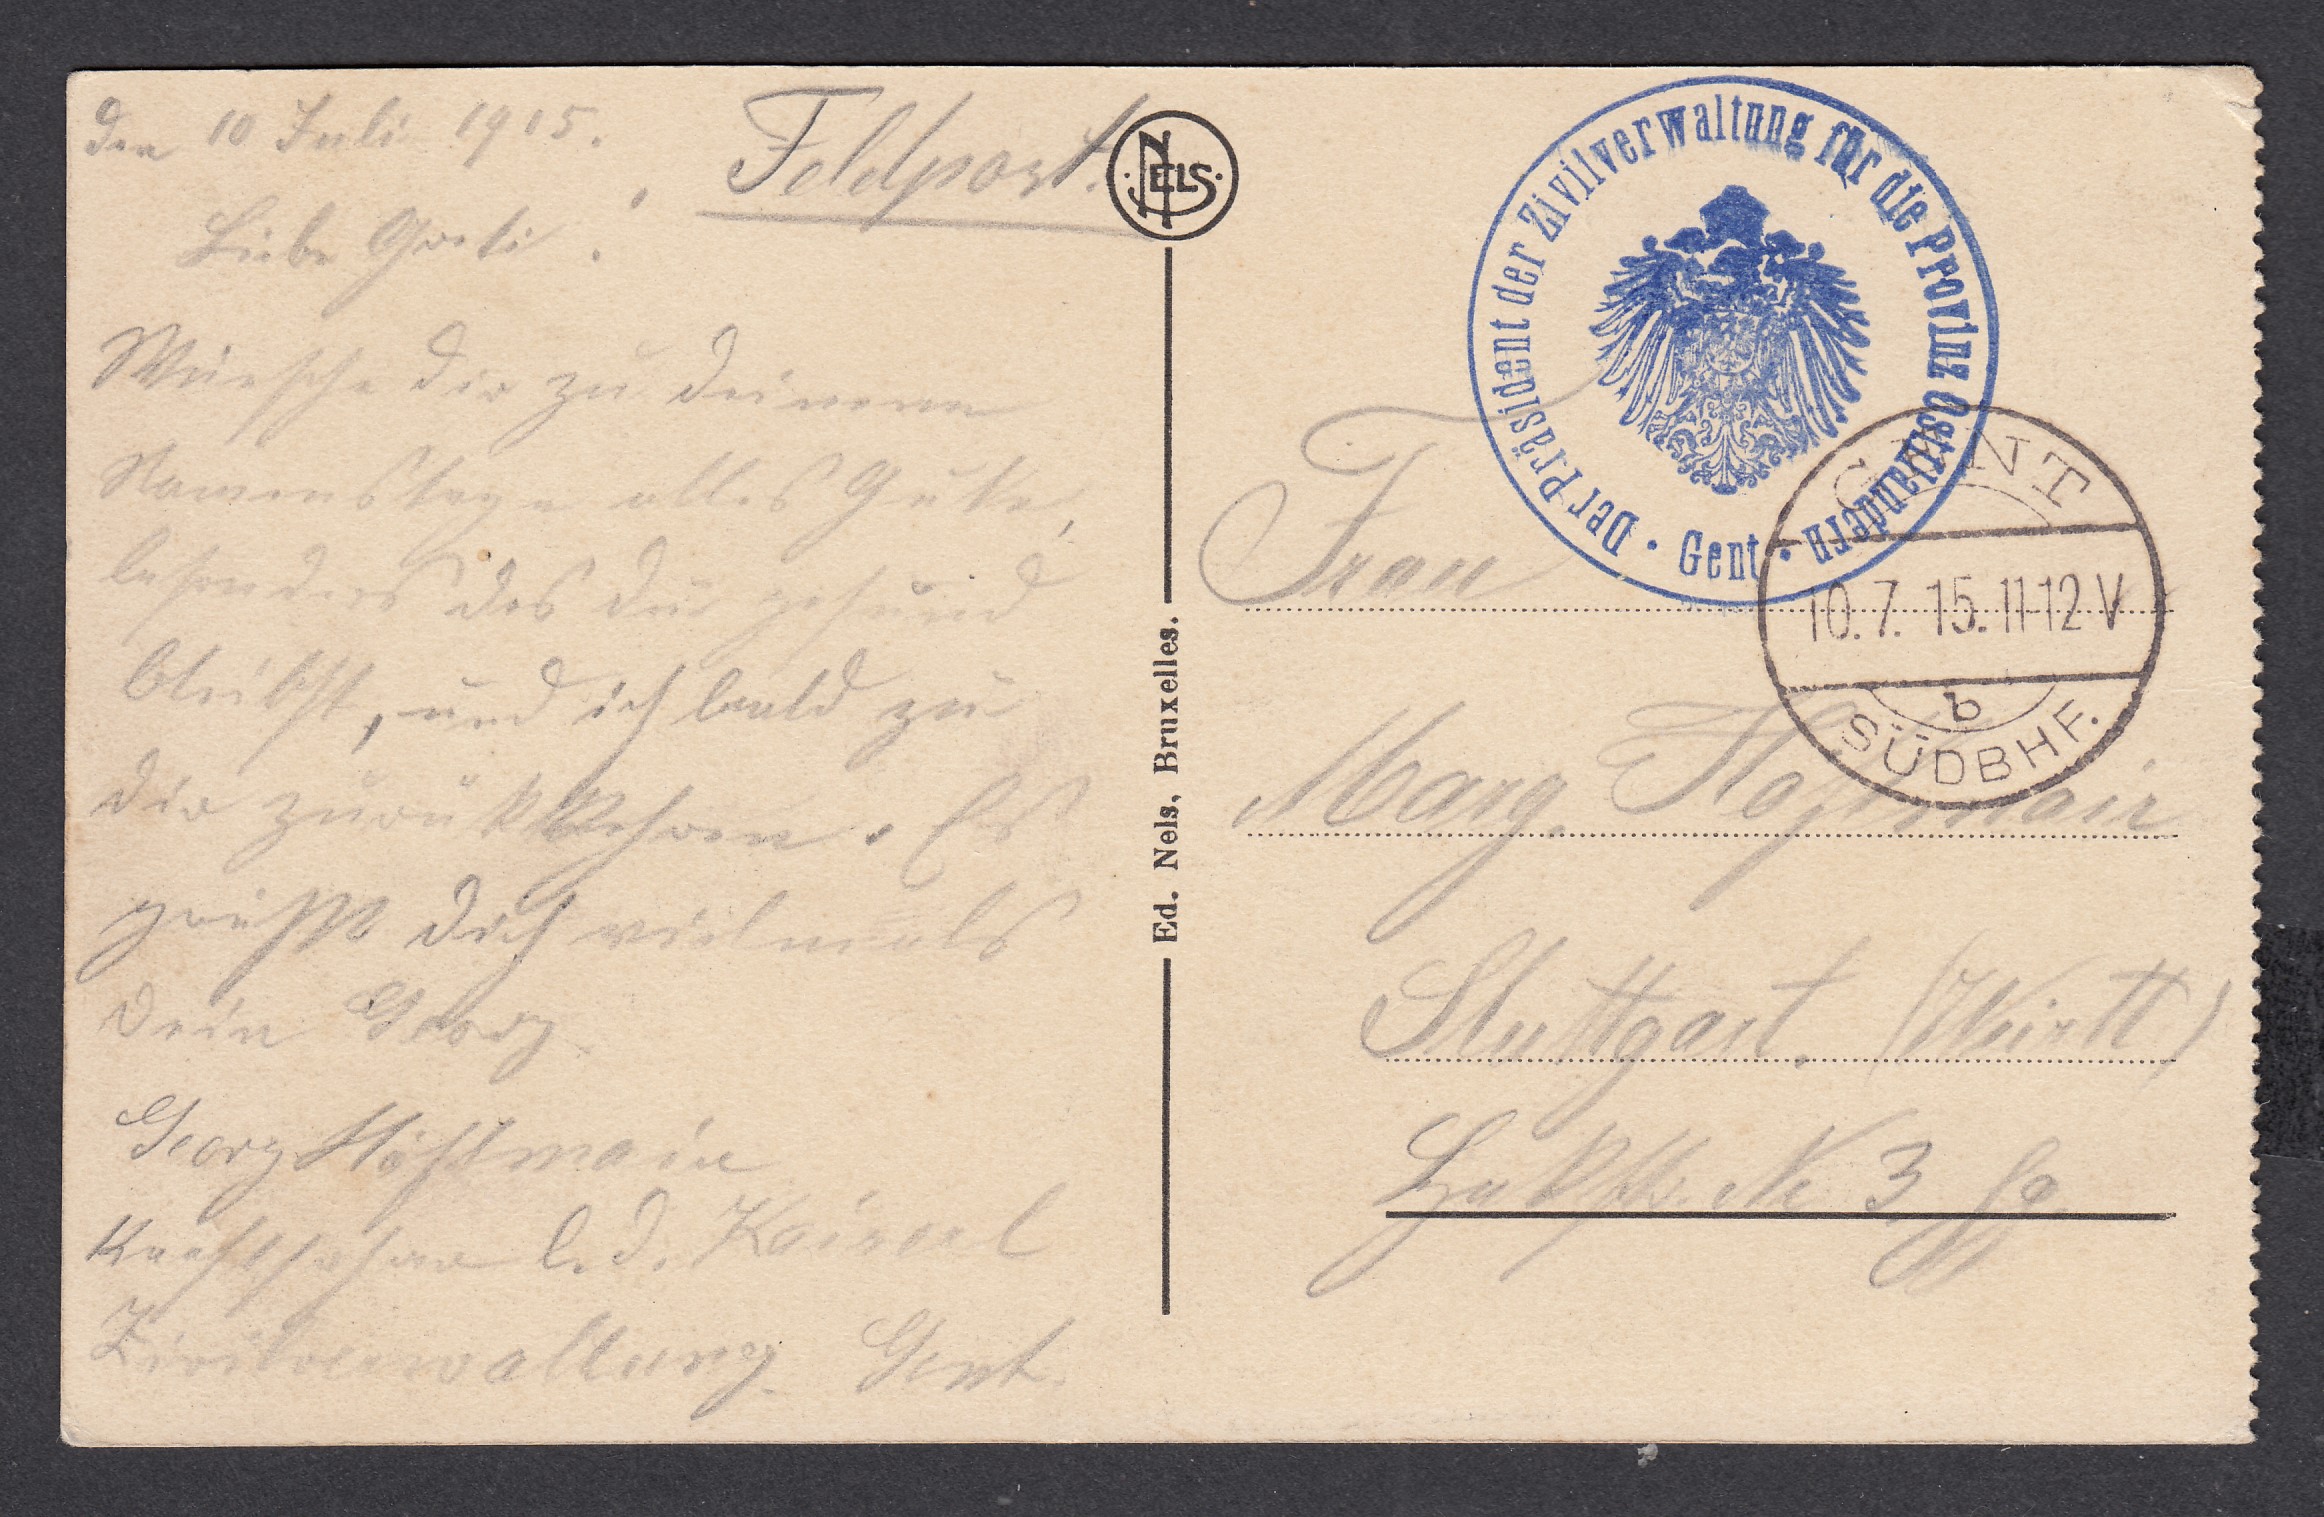 den 10 Juli 1915.
Feldpost.
NELS
Liebe Greti!
Wünsche dir zu deinem
Namenstage alles Gute,
besonders das du gesund
bleibst, und ich bald zu
dir zurükkehren. Es
grüßt dich vielmals
dein Georg
Georg Höflmair
Kraftfahrer b. d. Kaiserl
Zivilverwaltung Gent.
Ed. Nels, Bruxelles.
Der Präsident der Zivilverwaltung für die Provinz Ostflandern
• Gent •
GENT
10.7.15.11-12 V
b
SÜDBHF.
Frau
Marg. Höflmair
Stuttgart. (Württ)
No 3